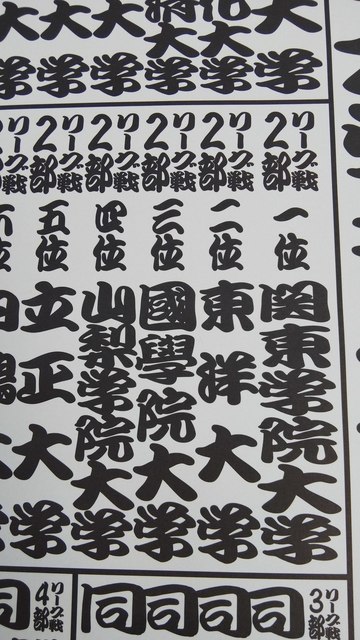 大学
大学
大学
大学
大学
大学
リーグ戦2部
一位
関東学院大学
リーグ戦2部
二位
東洋大学
リーグ戦2部
三位
國學院大学
リーグ戦2部
四位
山梨学院大学
リーグ戦2部
五位
立正大学
六位
大学
リーグ戦3部
同
同
同
同
リーグ戦4部
同